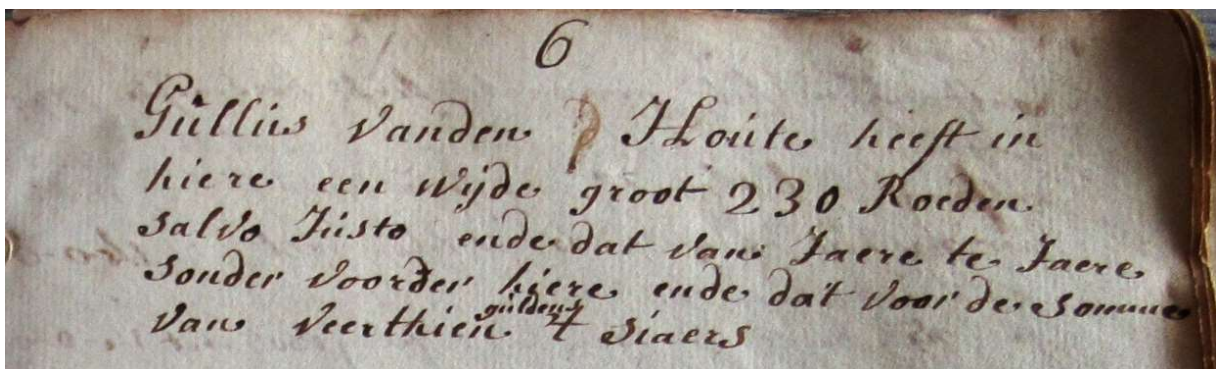 6
Gúllús vanden Houte heeft in
hiere een wijde groot 230 Roeden
salvo Jústo ende dat van Jaere te Jaere
sonder voorder hiere ende dat voor de somme
guldens
van veerthien siaers